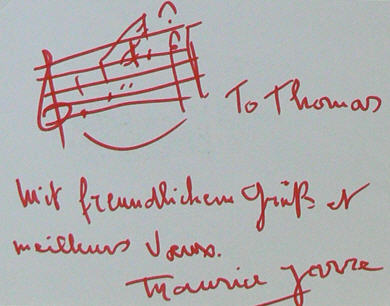 To Thomas
Mit freundlichem Grüß et
meilleurs Vœux.
Maurice Jarre